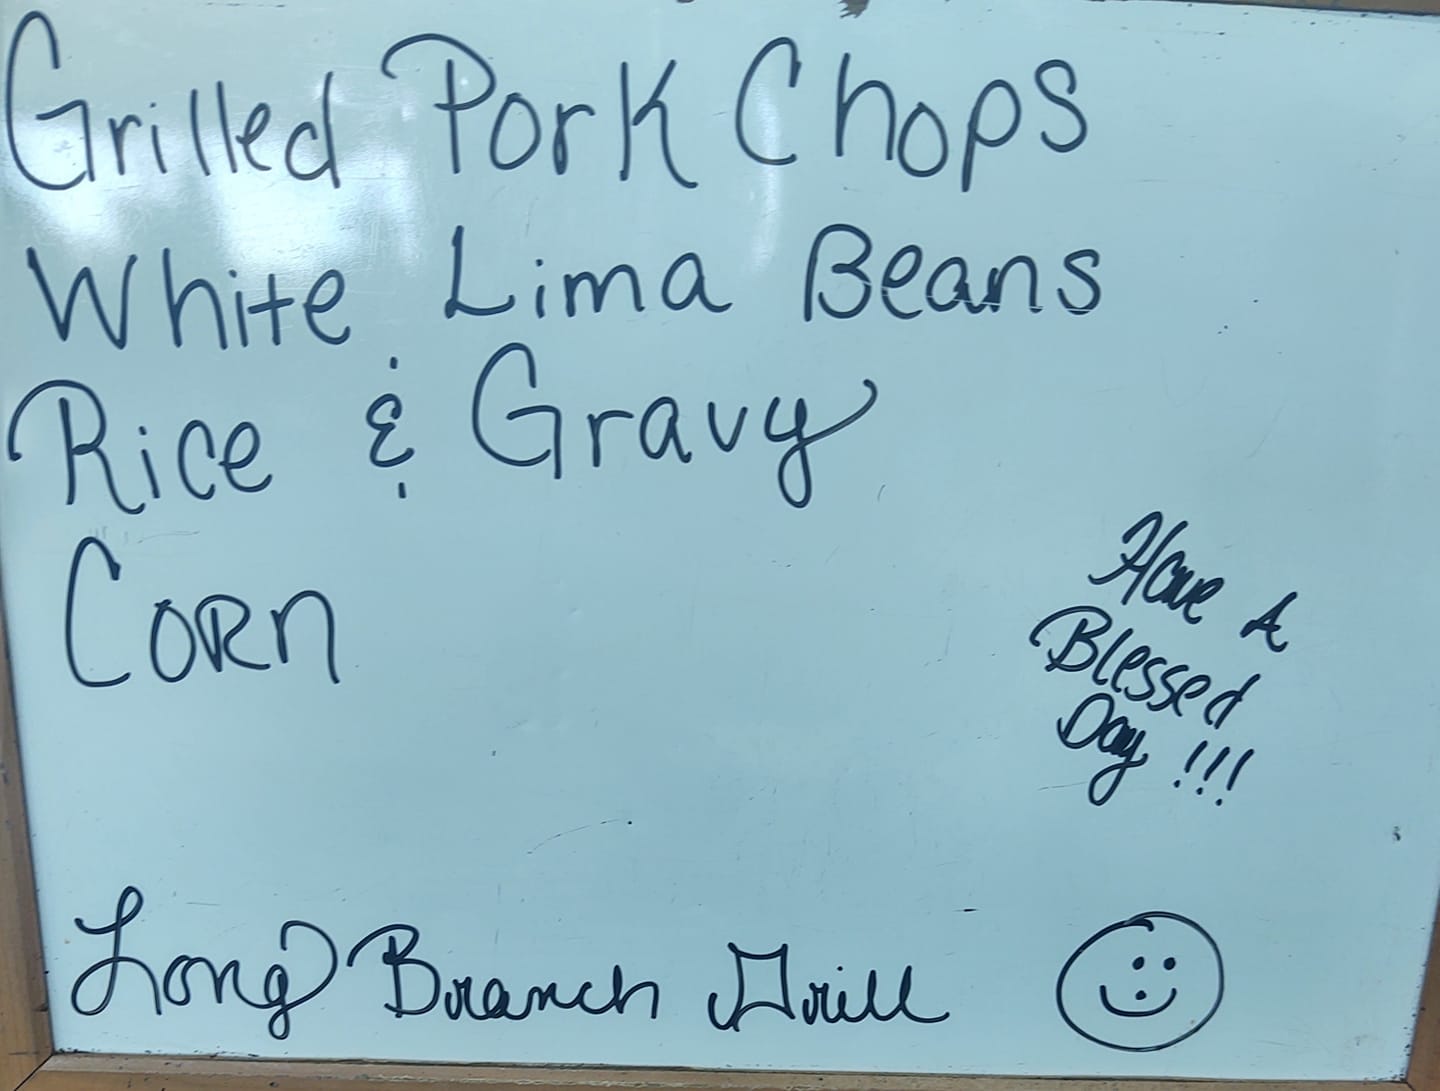 Grilled Pork Chops
White Lima Beans
Rice & Gravy
Corn
Have A
Blessed
Day !!!
Long Branch Grill